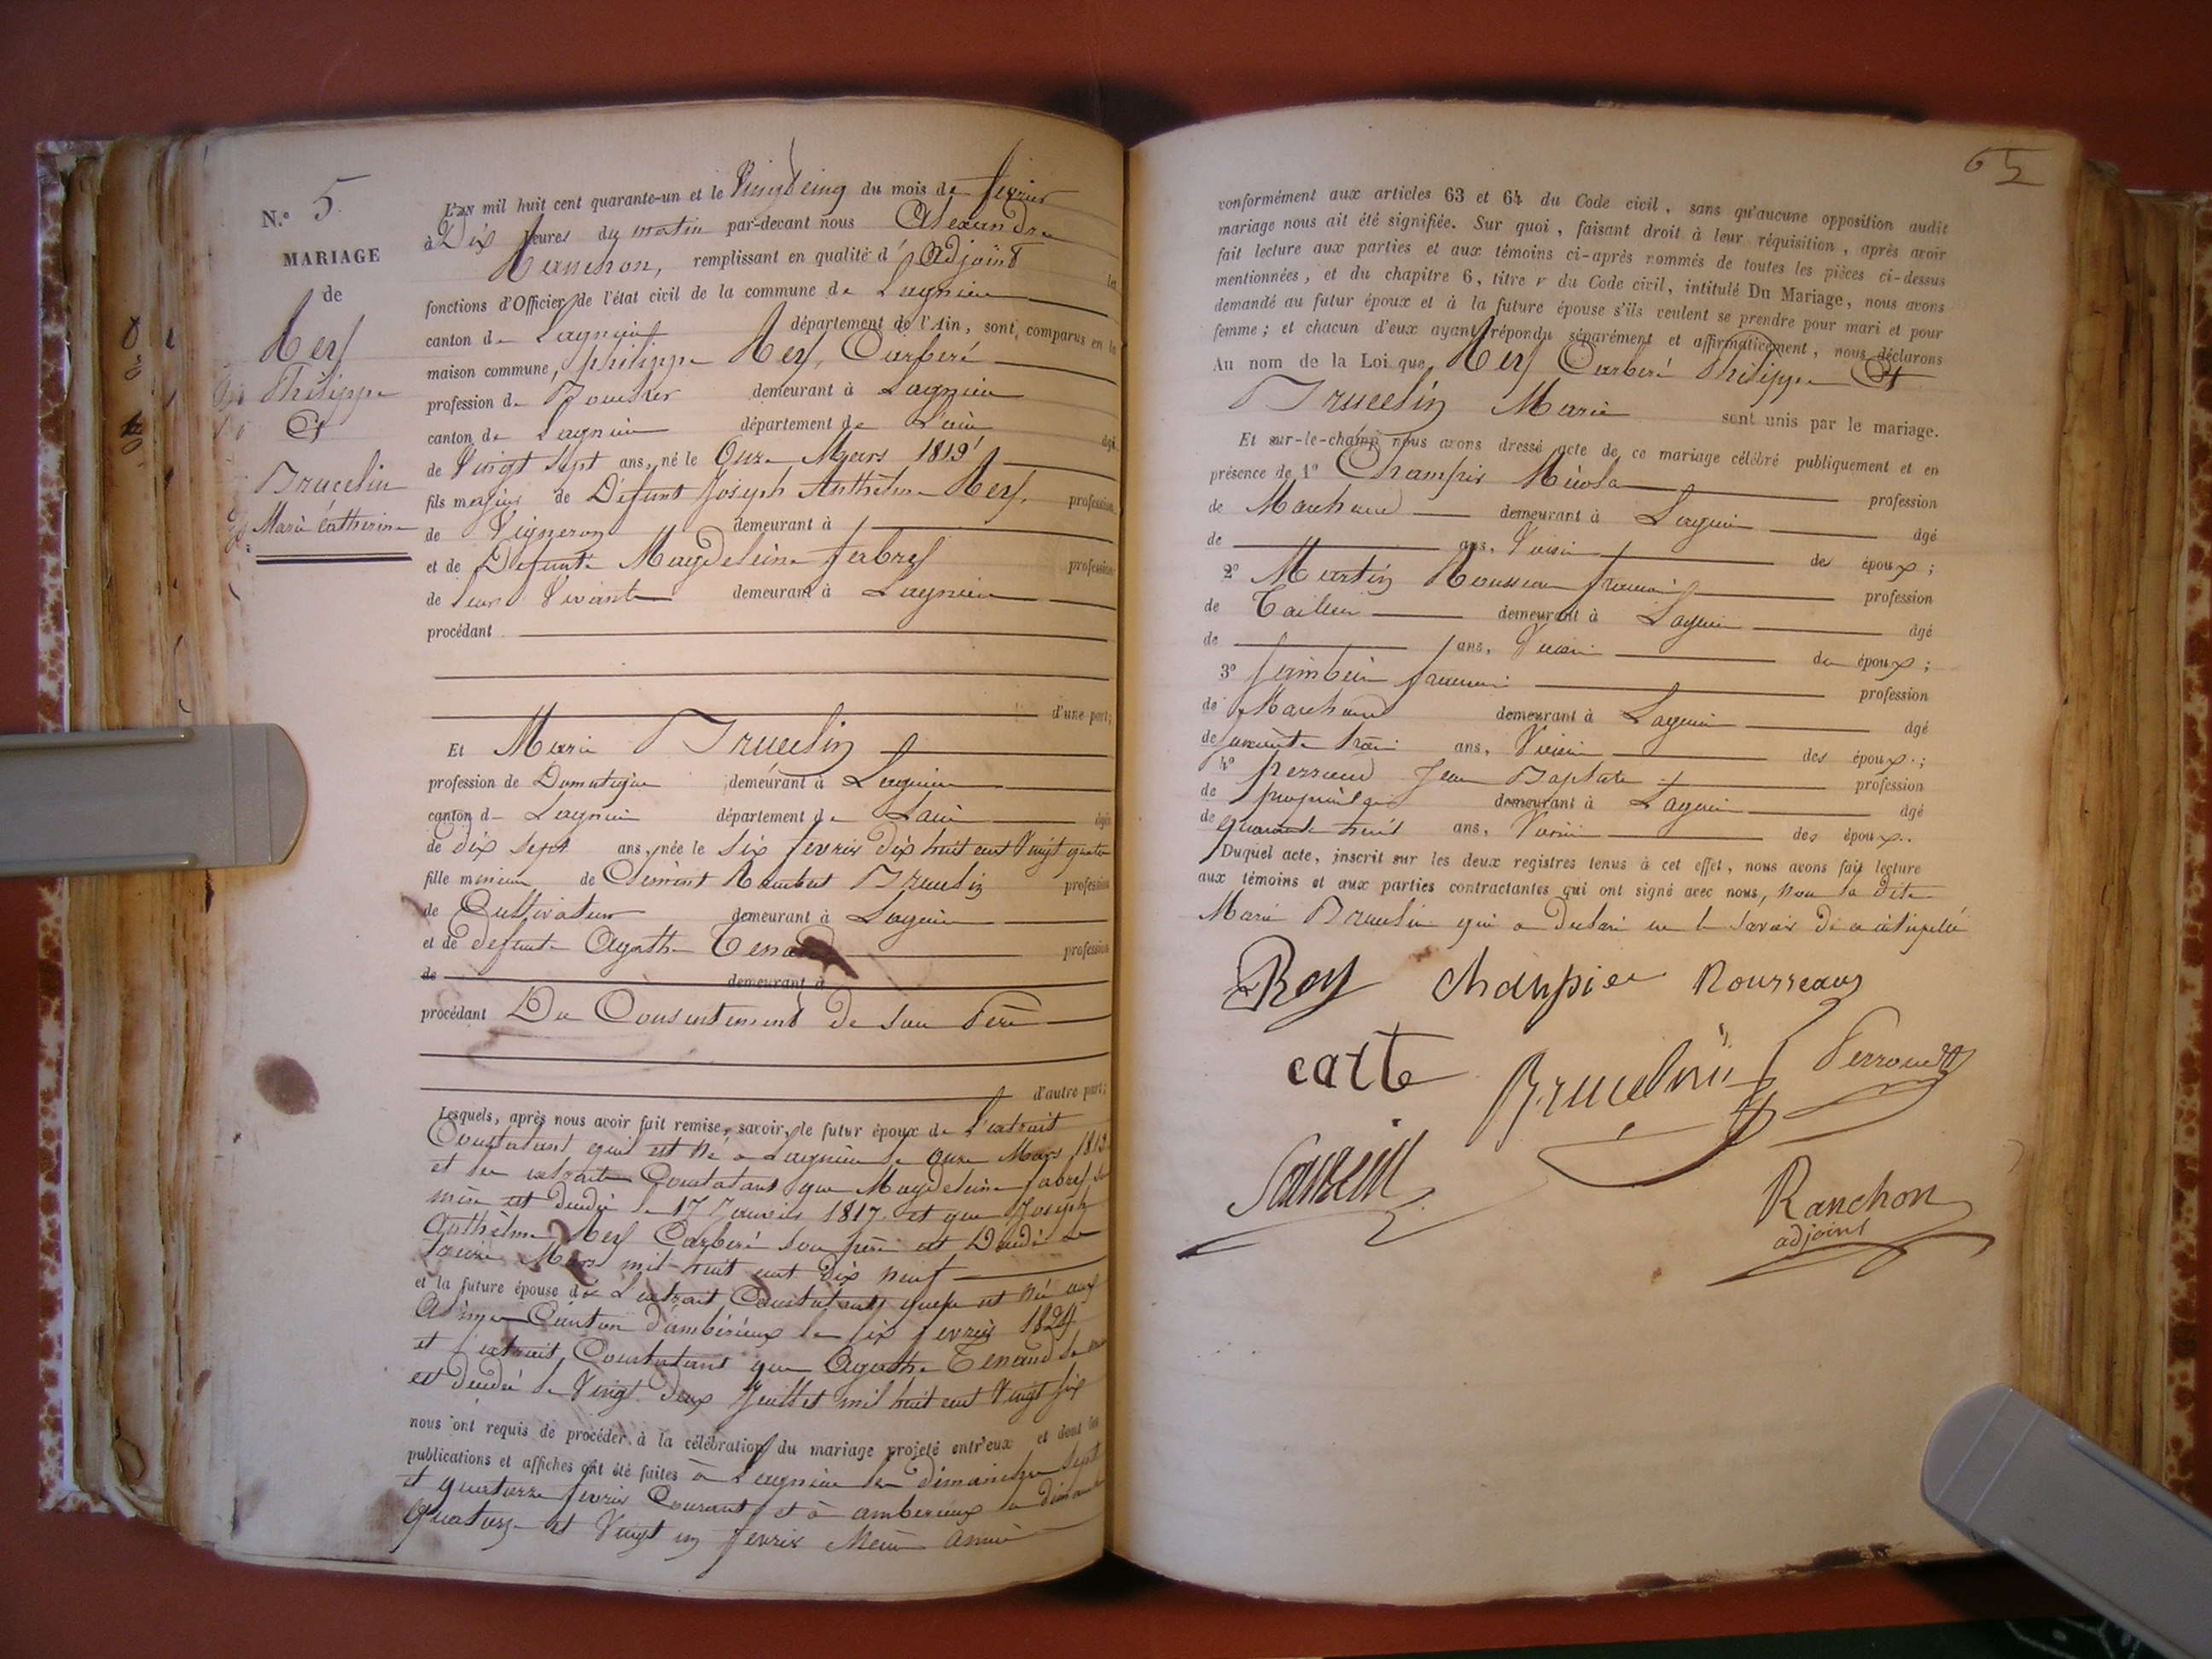 N.° 5
MARIAGE
de
Rey
Philippe
Et
Brucelin
Marie Catherine
L'AN mil huit cent quarante-un et le Vingt cinq du mois de fevrier
à Dix heures du matin par-devant nous Alexandre
Ranchon, remplissant en qualité d'Adjoint les
fonctions d'Officier de l'état civil de la commune de Lagnieu
canton de Lagnieu département de l'Ain, sont comparus en la
maison commune, philippe Rey, Carberé
profession de demeurant à Lagnieu
canton de Lagnieu département de L'ain âgé
de Vingt sept ans, né le Onze Mars 1813
fils majeur de Défunt Joseph Anthelme Rey, profession
de Vigneron demeurant à
et de Defunte Magdeleine fabry profession
de leur Vivant demeurant à Lagnieu
procédant
d'une part;
Et Marie Brucelin
profession de Domestique demeurant à Lagnieu
canton de Lagnieu département de Lain âgée
de dix sept ans, née le Six fevrier dix huit cent Vingt quatre
fille mineure de Clément Rambert Brucelin profession
de Cultivateur demeurant à Lagnieu
et de defunte Agathe Tenand profession
de demeurant à
procédant Du Consentement de son Père
d'autre part;
Lesquels, après nous avoir fait remise, savoir, le futur époux de L'extrait
Constatant qu'il est né à Lagnieu le Onze Mars 1813
et les extraits Constatant que Magdeleine fabry sa
mère est décédée le 17 Janvier 1817 et que Joseph
Anthelme Rey Carberé son père est Décédé le
Mars mil huit cent dix neuf
et la future épouse de L'extrait Constatant qu'elle est née aux
Canton d'ambérieux le six fevrier 1824
et l'extrait Constatant que Agathe Tenand sa mère
est décédée le Vingt deux Juillet mil huit cent Vingt six
nous ont requis de procéder à la célébration du mariage projeté entr'eux et dont les
publications et affiches ont été faites à Lagnieu les dimanches Sept
et quatorze fevrier Courant et à amberieux les dimanches
quatorze et Vingt un fevrier Même année
65
conformément aux articles 63 et 64 du Code civil, sans qu'aucune opposition audit
mariage nous ait été signifiée. Sur quoi, faisant droit à leur réquisition, après avoir
fait lecture aux parties et aux témoins ci-après nommés de toutes les pièces ci-dessus
mentionnées, et du chapitre 6, titre v du Code civil, intitulé Du Mariage, nous avons
demandé au futur époux et à la future épouse s'ils veulent se prendre pour mari et pour
femme; et chacun d'eux ayant répondu séparément et affirmativement, nous déclarons
Au nom de la Loi que Rey Carberé Philippe Et
Brucelin Marie sont unis par le mariage.
Et sur-le-champ nous avons dressé acte de ce mariage célébré publiquement et en
présence de 1° Champier Nicolas profession
de Marchand demeurant à Lagnieu âgé
de ans, Voisin des époux;
2° Martin Rousseau francois profession
de Tailleur demeurant à Lagnieu âgé
de ans, Voisin des époux;
3° francois profession
de Marchand demeurant à Lagnieu âgé
de trois ans, Voisin des époux;
4° perroud Jean Baptiste profession
de propriétaire demeurant à Lagnieu âgé
de quarante huit ans, Voisin des époux.
Duquel acte, inscrit sur les deux registres tenus à cet effet, nous avons fait lecture
aux témoins et aux parties contractantes qui ont signé avec nous, non la dite
Marie Brucelin qui a declaré ne le savoir de ce interpellé
Rey champier Rousseau
catte Brucelin Perroud
Ranchon
adjoint